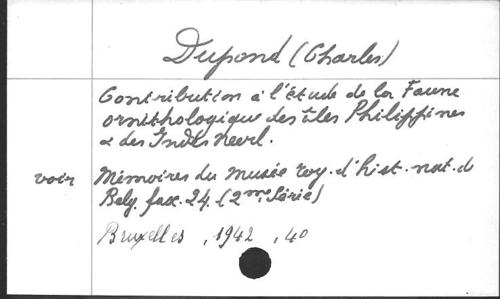 Dupond (Charles)
Contribution à l'étude de la Faune
ornithologique des îles Philippines
& des Indes Neerl.
voir Mémoires du musée roy. d'hist. nat. de
Belg. fasc. 24. (2me Série)
Bruxelles , 1942 , 40